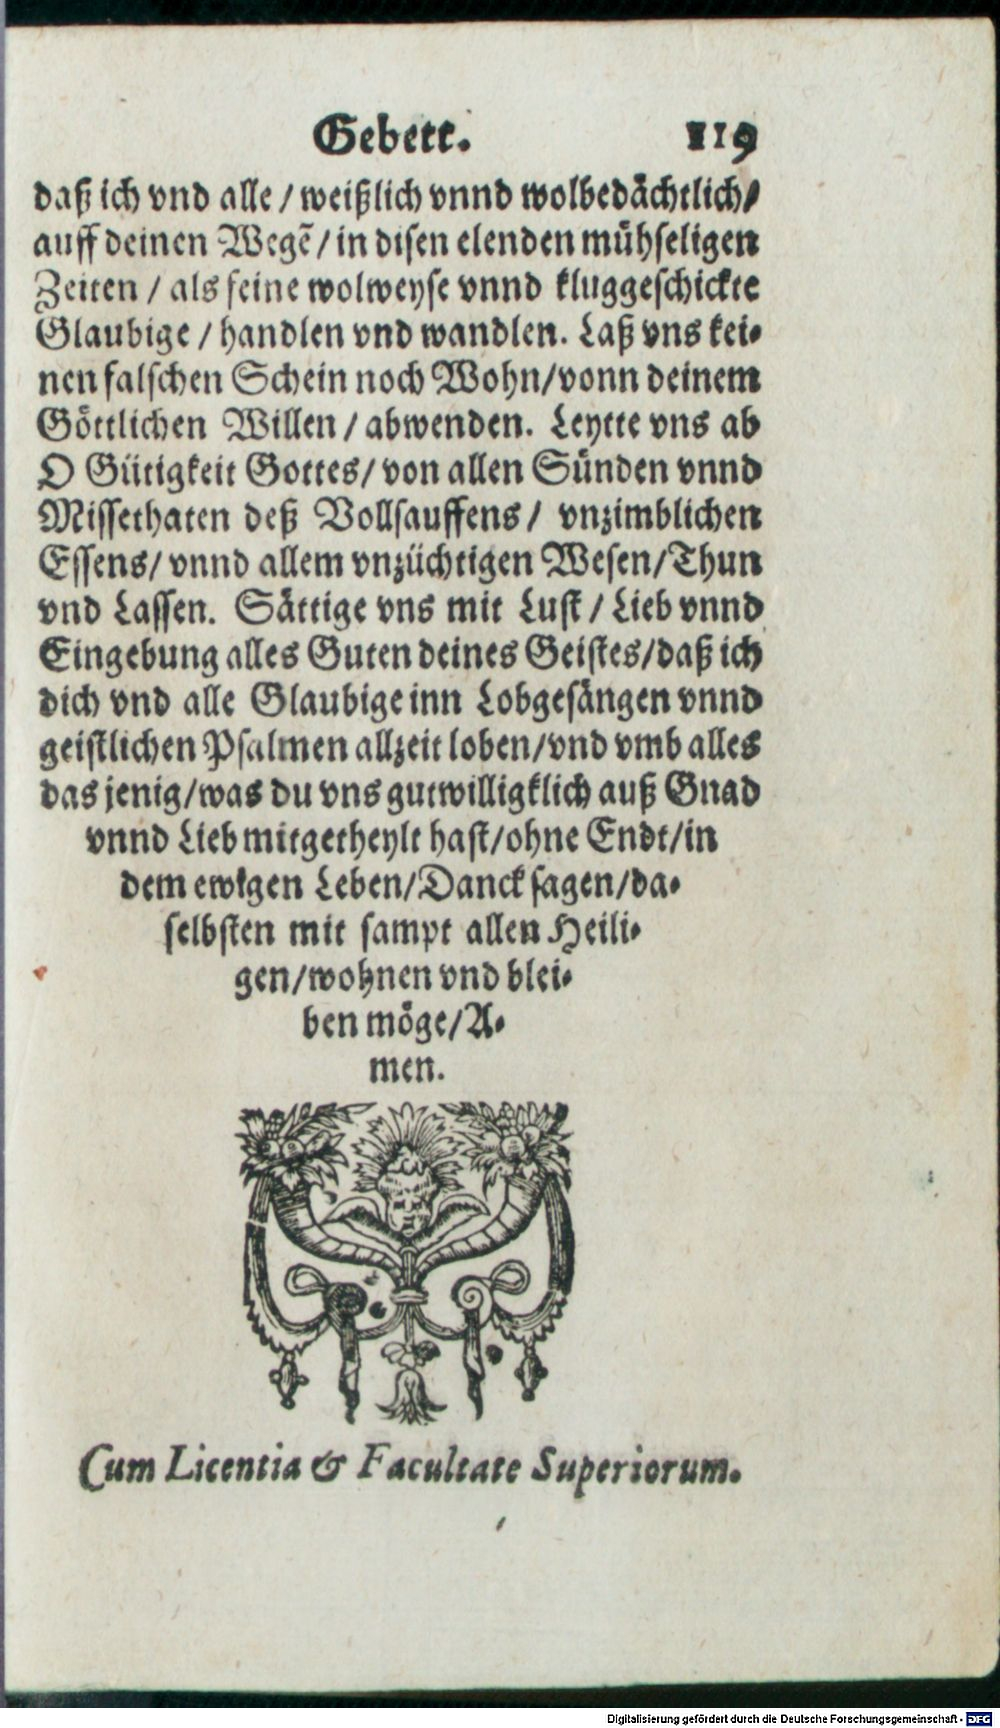 Gebett. 119
daß ich vnd alle / weißlich vnnd wolbedächtlich /
auff deinen Wegẽ / in disen elenden mühseligen
Zeiten / als feine wolweyse vnnd kluggeschickte
Glaubige / handlen vnd wandlen. Laß vns kei-
nen falschen Schein noch Wohn / vonn deinem
Göttlichen Willen / abwenden. Leytte vns ab
O Gütigkeit Gottes / von allen Sünden vnnd
Missethaten deß Vollsauffens / vnzimblichen
Essens / vnnd allem vnzüchtigen Wesen / Thun
vnd Lassen. Sättige vns mit Lust / Lieb vnnd
Eingebung alles Guten deines Geistes / daß ich
dich vnd alle Glaubige inn Lobgesängen vnnd
geistlichen Psalmen allzeit loben / vnd vmb alles
das jenig / was du vns gutwilligklich auß Gnad
vnnd Lieb mitgetheylt hast / ohne Endt / in
dem ewigen Leben / Danck sagen / da-
selbsten mit sampt allen Heili-
gen / wohnen vnd blei-
ben möge / A-
men.
Cum Licentia & Facultate Superiorum.
Digitalisierung gefördert durch die Deutsche Forschungsgemeinschaft - DFG